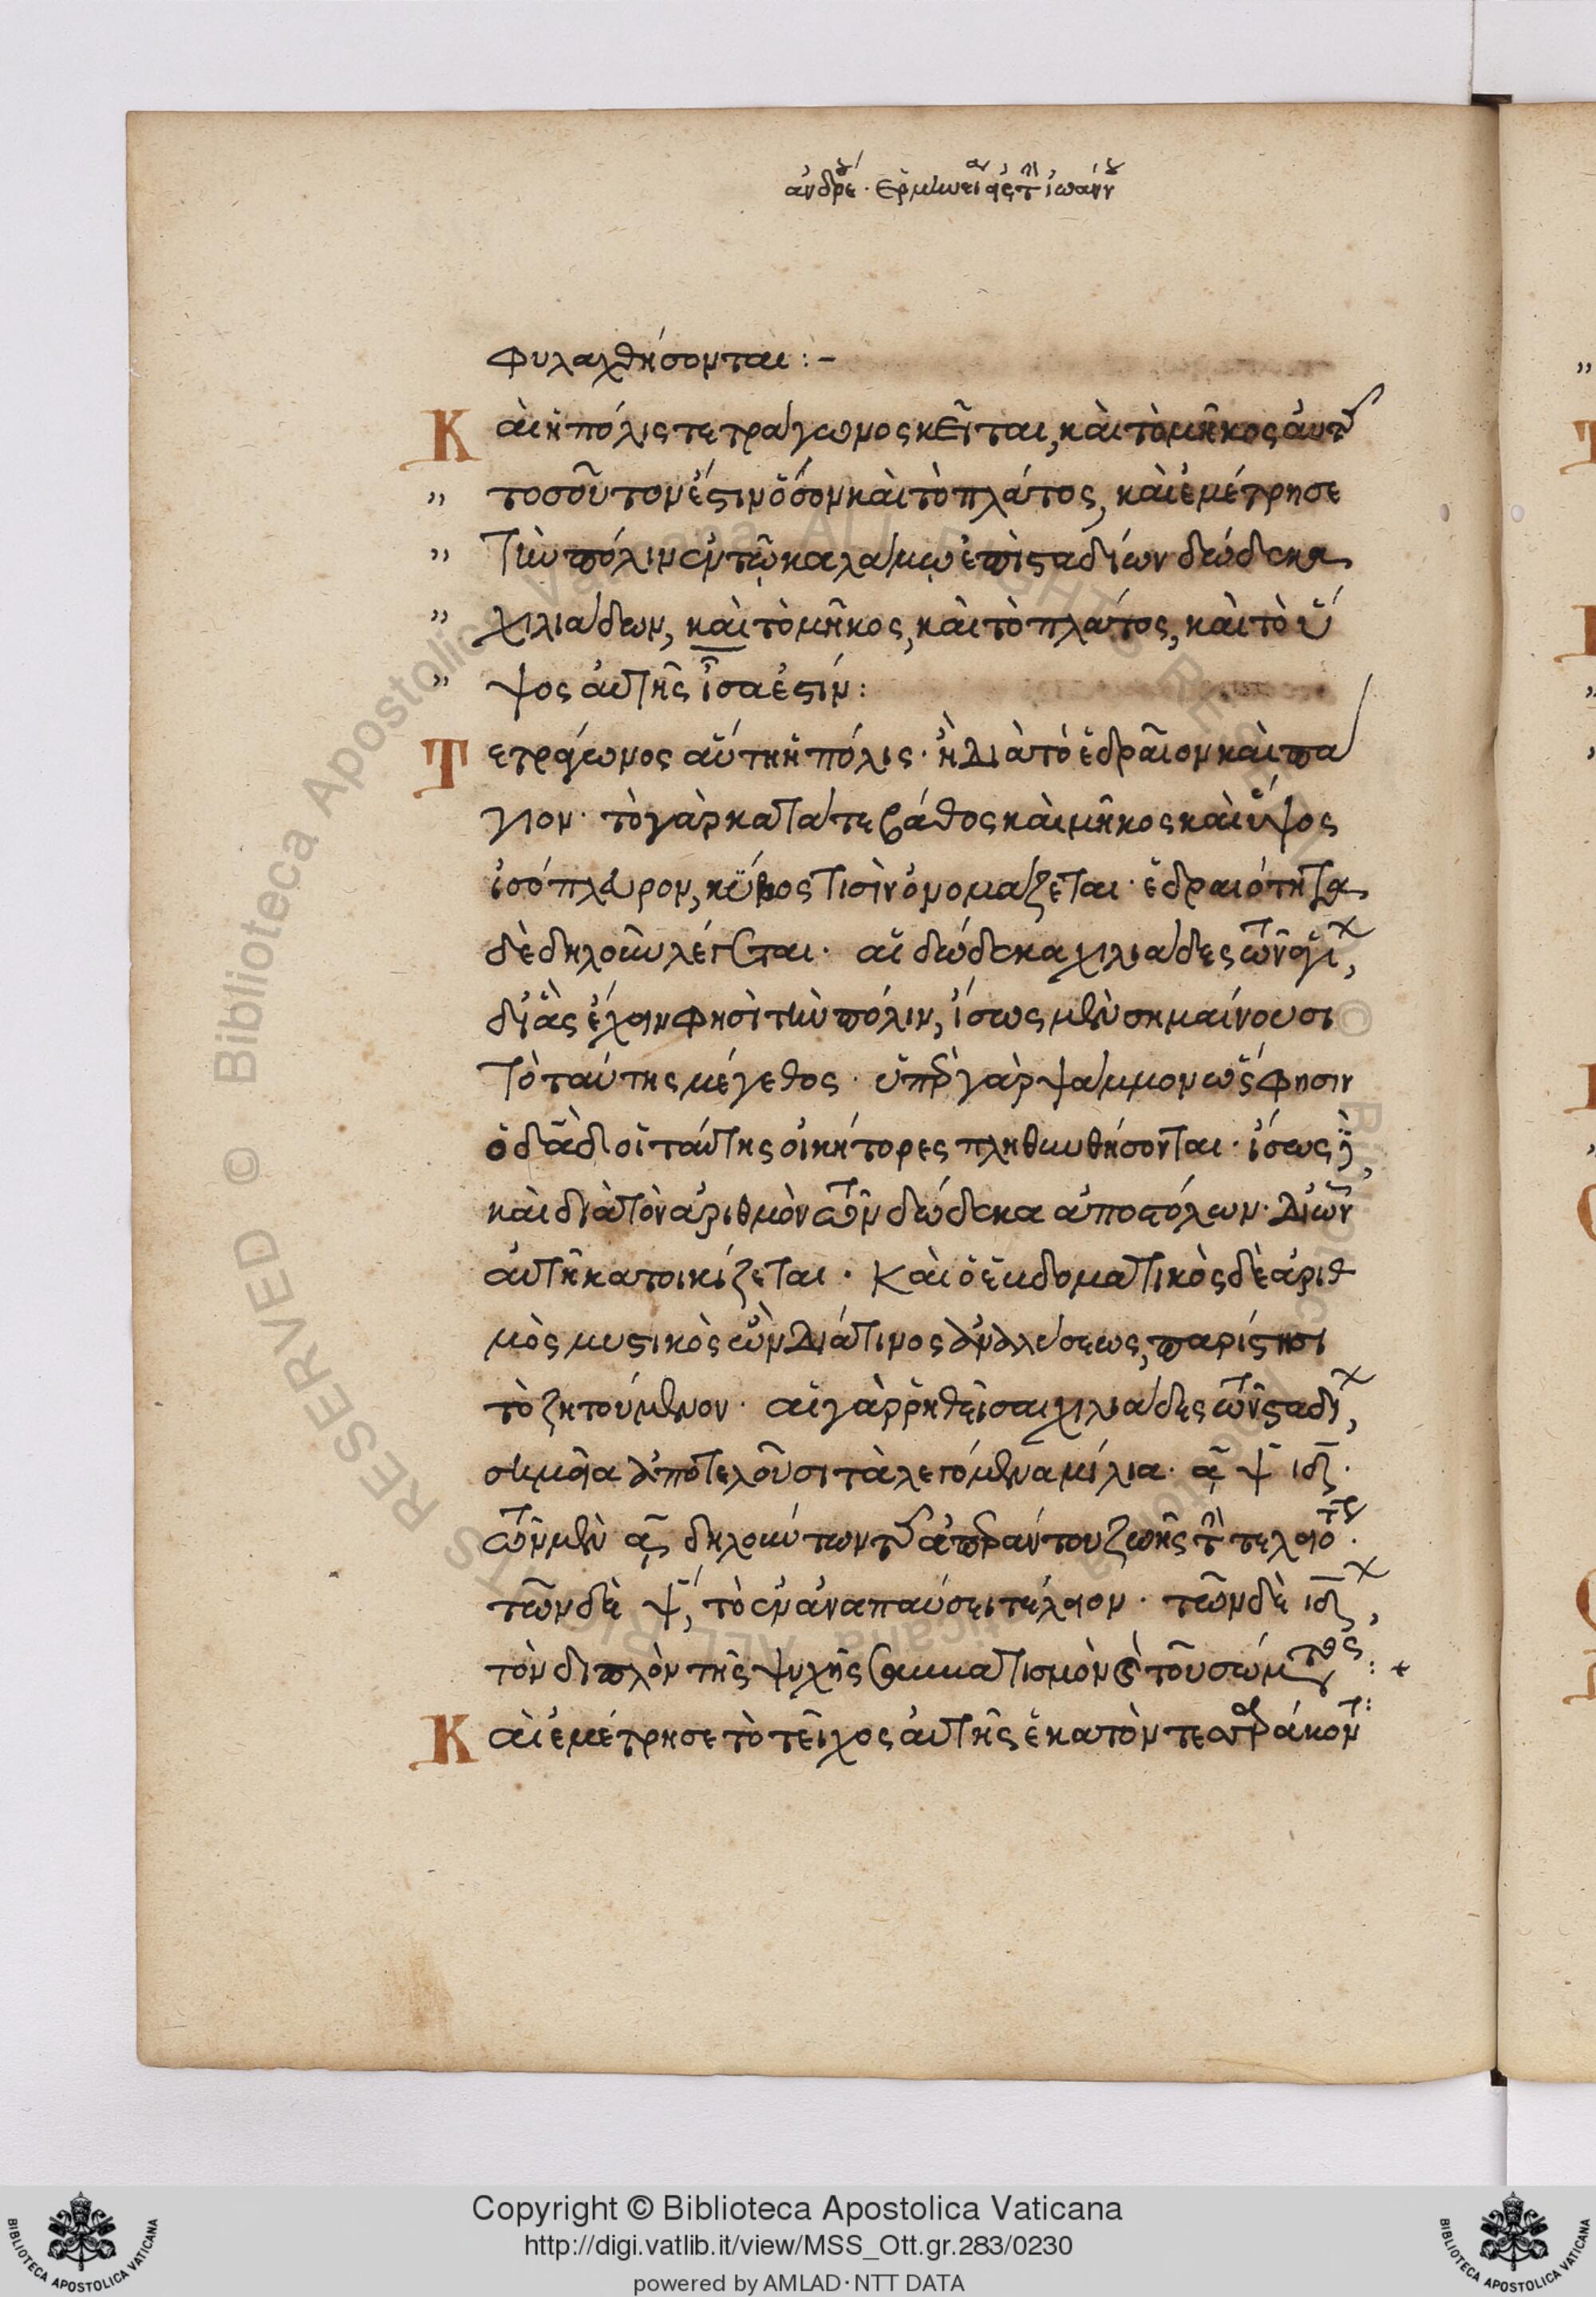 ἀνδρέ· ἑρμηνεία εἰς τὴν ἰωάνν
φυλαχθήσονται:-
Καὶ ἡ πόλις τετράγωνος κεῖται, καὶ τὸ μῆκος αὐτῆς
" τοσοῦτον ἐστιν ὅσον καὶ τὸ πλάτος, καὶ ἐμέτρησε
" τὴν πόλιν ἐν τῷ καλάμῳ ἐπὶ σταδίων δώδεκα
" χιλιάδων, καὶ τὸ μῆκος, καὶ τὸ πλάτος, καὶ τὸ ὕ
" ψος αὐτῆς ἴσα ἐστίν:
Τετράγωνος αὕτη ἡ πόλις· ἢ διὰ τὸ ἑδραῖον καὶ πά
γιον· τὸ γὰρ κατά τε βάθος καὶ μῆκος καὶ ὕψος
ἰσόπλευρον, κύβος τισὶν ὀνομάζεται· ἑδραιότητα
δὲ δηλοῦν λέγεται· αἱ δώδεκα χιλιάδες τῶν
δι' ἃς ἔχειν φησὶ τὴν πόλιν, ἴσως μὲν σημαίνουσι
τὸ ταύτης μέγεθος· ὑπὲρ γὰρ ψάμμον ὥς φησιν
ὁ δαδ οἱ ταύτης οἰκήτορες πληθυνθήσονται· ἴσως δὲ,
καὶ διὰ τὸν ἀριθμὸν τῶν δώδεκα ἀποστόλων· δι' ὧν
αὐτὴ κατοικίζεται· καὶ ὁ ἑβδοματικὸς δὲ ἀριθ
μὸς μυστικὸς ὢν διά τινος ἀναλύσεως, παρίστησι
τὸ ζητούμενον· αἱ γὰρ ῥηθεῖσαι χιλιάδες τῶν σταδί,
σημεῖα ἀποτελοῦσι τὰ λεγόμενα μίλια· ͵α ψ ιδ·
τῶν μὲν ͵α δηλούντων τοῦ ἀπεράντου ζωῆς τὴν τελειότητα·
τῶν δὲ ψ, τὸ ἐν ἀναπαύσει τέλειον· τῶν δὲ ιδ,
τὸν διπλὸν τῆς ψυχῆς σαββατισμὸν καὶ τοῦ σώματος: +
Καὶ ἐμέτρησε τὸ τεῖχος αὐτῆς ἑκατὸν τεσσαράκοντ:
Copyright © Biblioteca Apostolica Vaticana
http://digi.vatlib.it/view/MSS_Ott.gr.283/0230
powered by AMLAD·NTT DATA